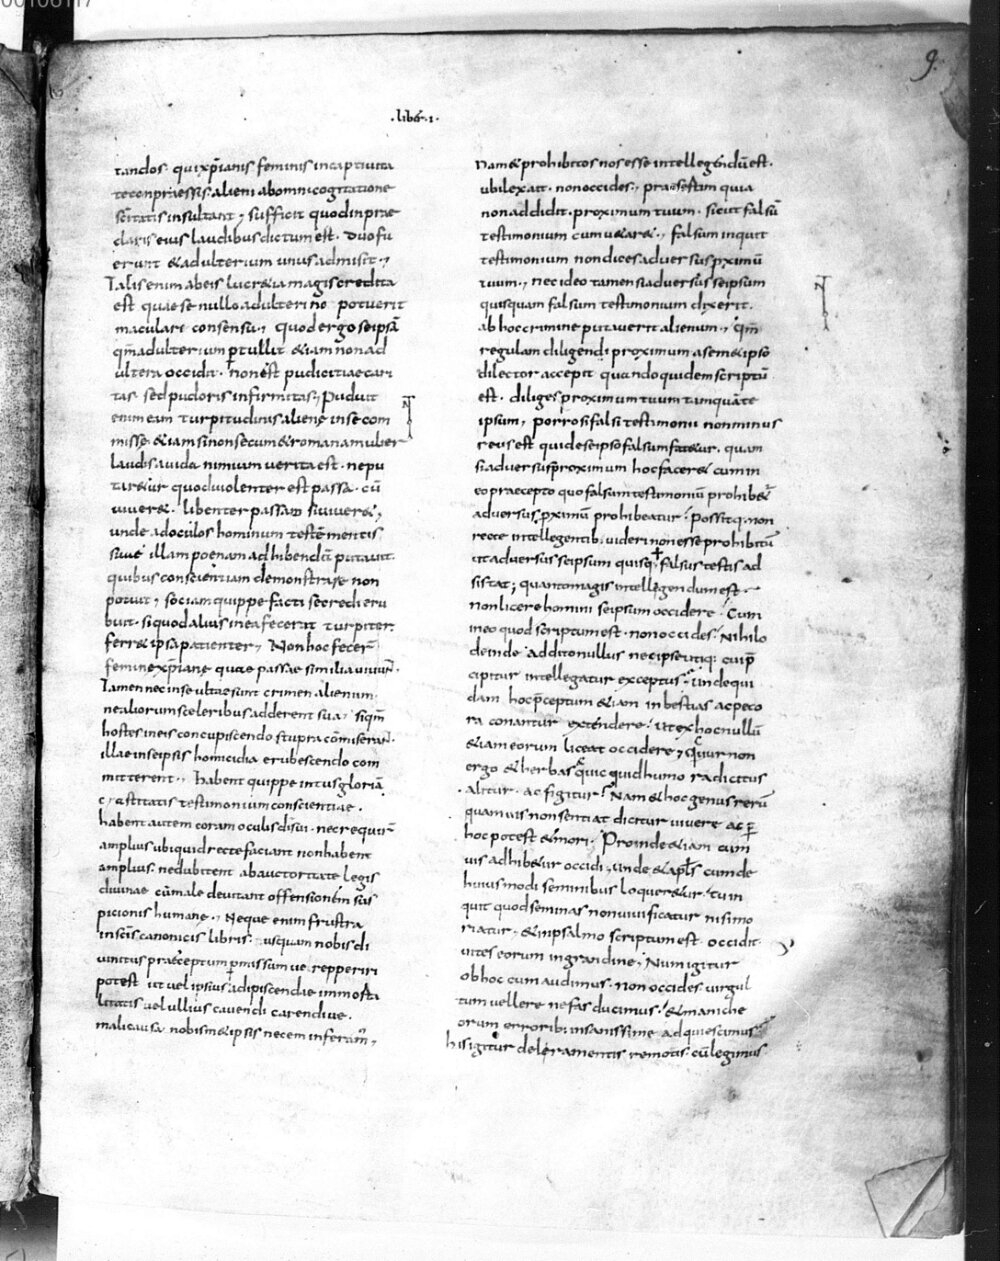 9.
·liber·i·
tandos· qui xp̄ianis feminis in captiuita
te conpraessis· alieni ab omni cogitatione
sc̄itatis insultant; sufficit quod in prae
claris eius laudibus dictum est· duo fu
erunt & adulterium unus admisit·,
Talis enim ab eis lucr&ia magis credita
est quae se nullo adulterino potuerit
maculare consensu·, quod ergo se ipsā
qm̄ adulterium ptullit &iam non ad
ultera occidit· non est pudicitiae cari
tas· sed pudoris infirmitas·, Puduit
enim eam turpitudinis alienę in se com
missę· &iam si non secum & romana mulier
laudis auida nimium uerita est· ne pu
tar&ur quod uiolenter est passa· cū
uiuer&· libenter passa si uiuer&,
unde ad oculos hominum testē mentis
suae illam poenam adhibendā putauit·
quibus conscientiam demonstrare non
potuit, sociam quippe facti se credi eru
buit· si quod alius in ea fecerat turpiter
ferr& ipsa patienter, Non hoc fecer̄
feminę xp̄ianę quae passae similia uiuunt·
Tamen nec in se ultae sunt crimen alienum·
ne aliorum sceleribus adderent sua· si qm̄
hostes in eis concupiscendo stupra cōmiserant·
illae in se ipsis homicidia erubescendo com
mitterent·, habent quippe intus gloriā
castitatis testimonium conscientiae·
habent autem coram oculis dī sui· nec requir̄
amplius ubi quid recte faciant non habent
amplius· ne dubitent ab auctoritate legis
diuinae cū male deuitant offensionem sus
picionis humanę·, Neque enim frustra
in sc̄is canonicis libris· usquam nobis di
uinitus praeceptum pmissum ue repperiri
potest ut uel ipsius adipiscendae immorta
litatis uel ullius cauendi carendiue·
mali causa nobism&ipsis necem inferam̄,
Nam & prohibitos nos esse intellegendū est·
ubi lex ait· non occides·, praesertim quia
non addidit· proximum tuum· sicut falsū
testimonium cum u&ar&·, falsum inquit
testimonium non dices aduersus pximū
tuum·, nec ideo tamen si aduersus se ipsum
quisquam falsum testimonium dixerit·
ab hoc crimine putauerit alienum·, qm̄
regulam diligendi proximum a sem&ipso
dilector accepit quando quidem scriptū
est· diliges proximum tuum tamquā te
ipsum, porro si falsi testimonii non minus
reus est qui de se ipso falsum fat&ur· quam
si aduersus proximum hoc facer& cum in
eo praecepto quo falsum testimoniū prohib&ur
aduersus pximū prohibeatur· possitq· non
recte intellegentib· uideri non esse prohibitū
ut aduersus se ipsum quisq· falsus testis ad
sistat; quanto magis intellegendum est·
non licere homini se ipsum occidere· Cum
in eo quod scriptum est· non occides· Nihilo
deinde addito nullus nec ipse utiq· cui p̄
cipitur intellegatur exceptus· unde qui
dam hoc p̄ceptum &iam in bestias ac peco
ra conantur extendere· ut ex hoc nullū
&iam eorum liceat occidere, cur non
ergo & herbas & quicquid humo radicitus
alitur· ac figitur· Nam & hoc genus rerū
quamuis non sentiat dicitur uiuere ac p̄
hoc potest & mori· Proinde &iam cum
uis adhib&ur occidi, unde & apl̄s cum de
huius modi seminibus loquer&ur· tu in
quit quod seminas non uiuificatur nisi mo
riatur, & in psalmo scriptum est· occidit
uites eorum in grandine, Num igitur
ob hoc cum audimus· non occides· uirgul
tum uellere nefas ducimus· & maniche
orum errorib· insanissime adquiescimus
his igitur deleramentis remotis· cū legimus